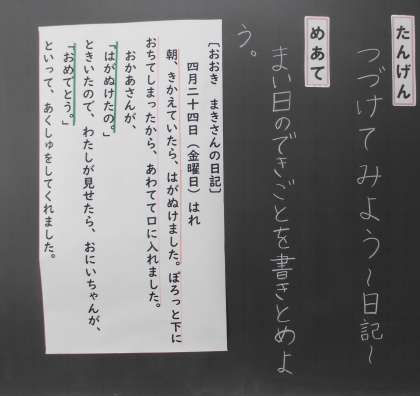 たんげん
つづけてみよう~日記~
めあて
まい日のできごとを書きとめよ
う。
[おおき　まきさんの日記]
四月二十四日(金曜日)はれ
朝、きかえていたら、はがぬけました。ぽろっと下に
おちてしまったから、あわてて口に入れました。
おかあさんが、
「はがぬけたの。」
ときいたので、わたしが見せたら、おにいちゃんが、
「おめでとう。」
といって、あくしゅをしてくれました。